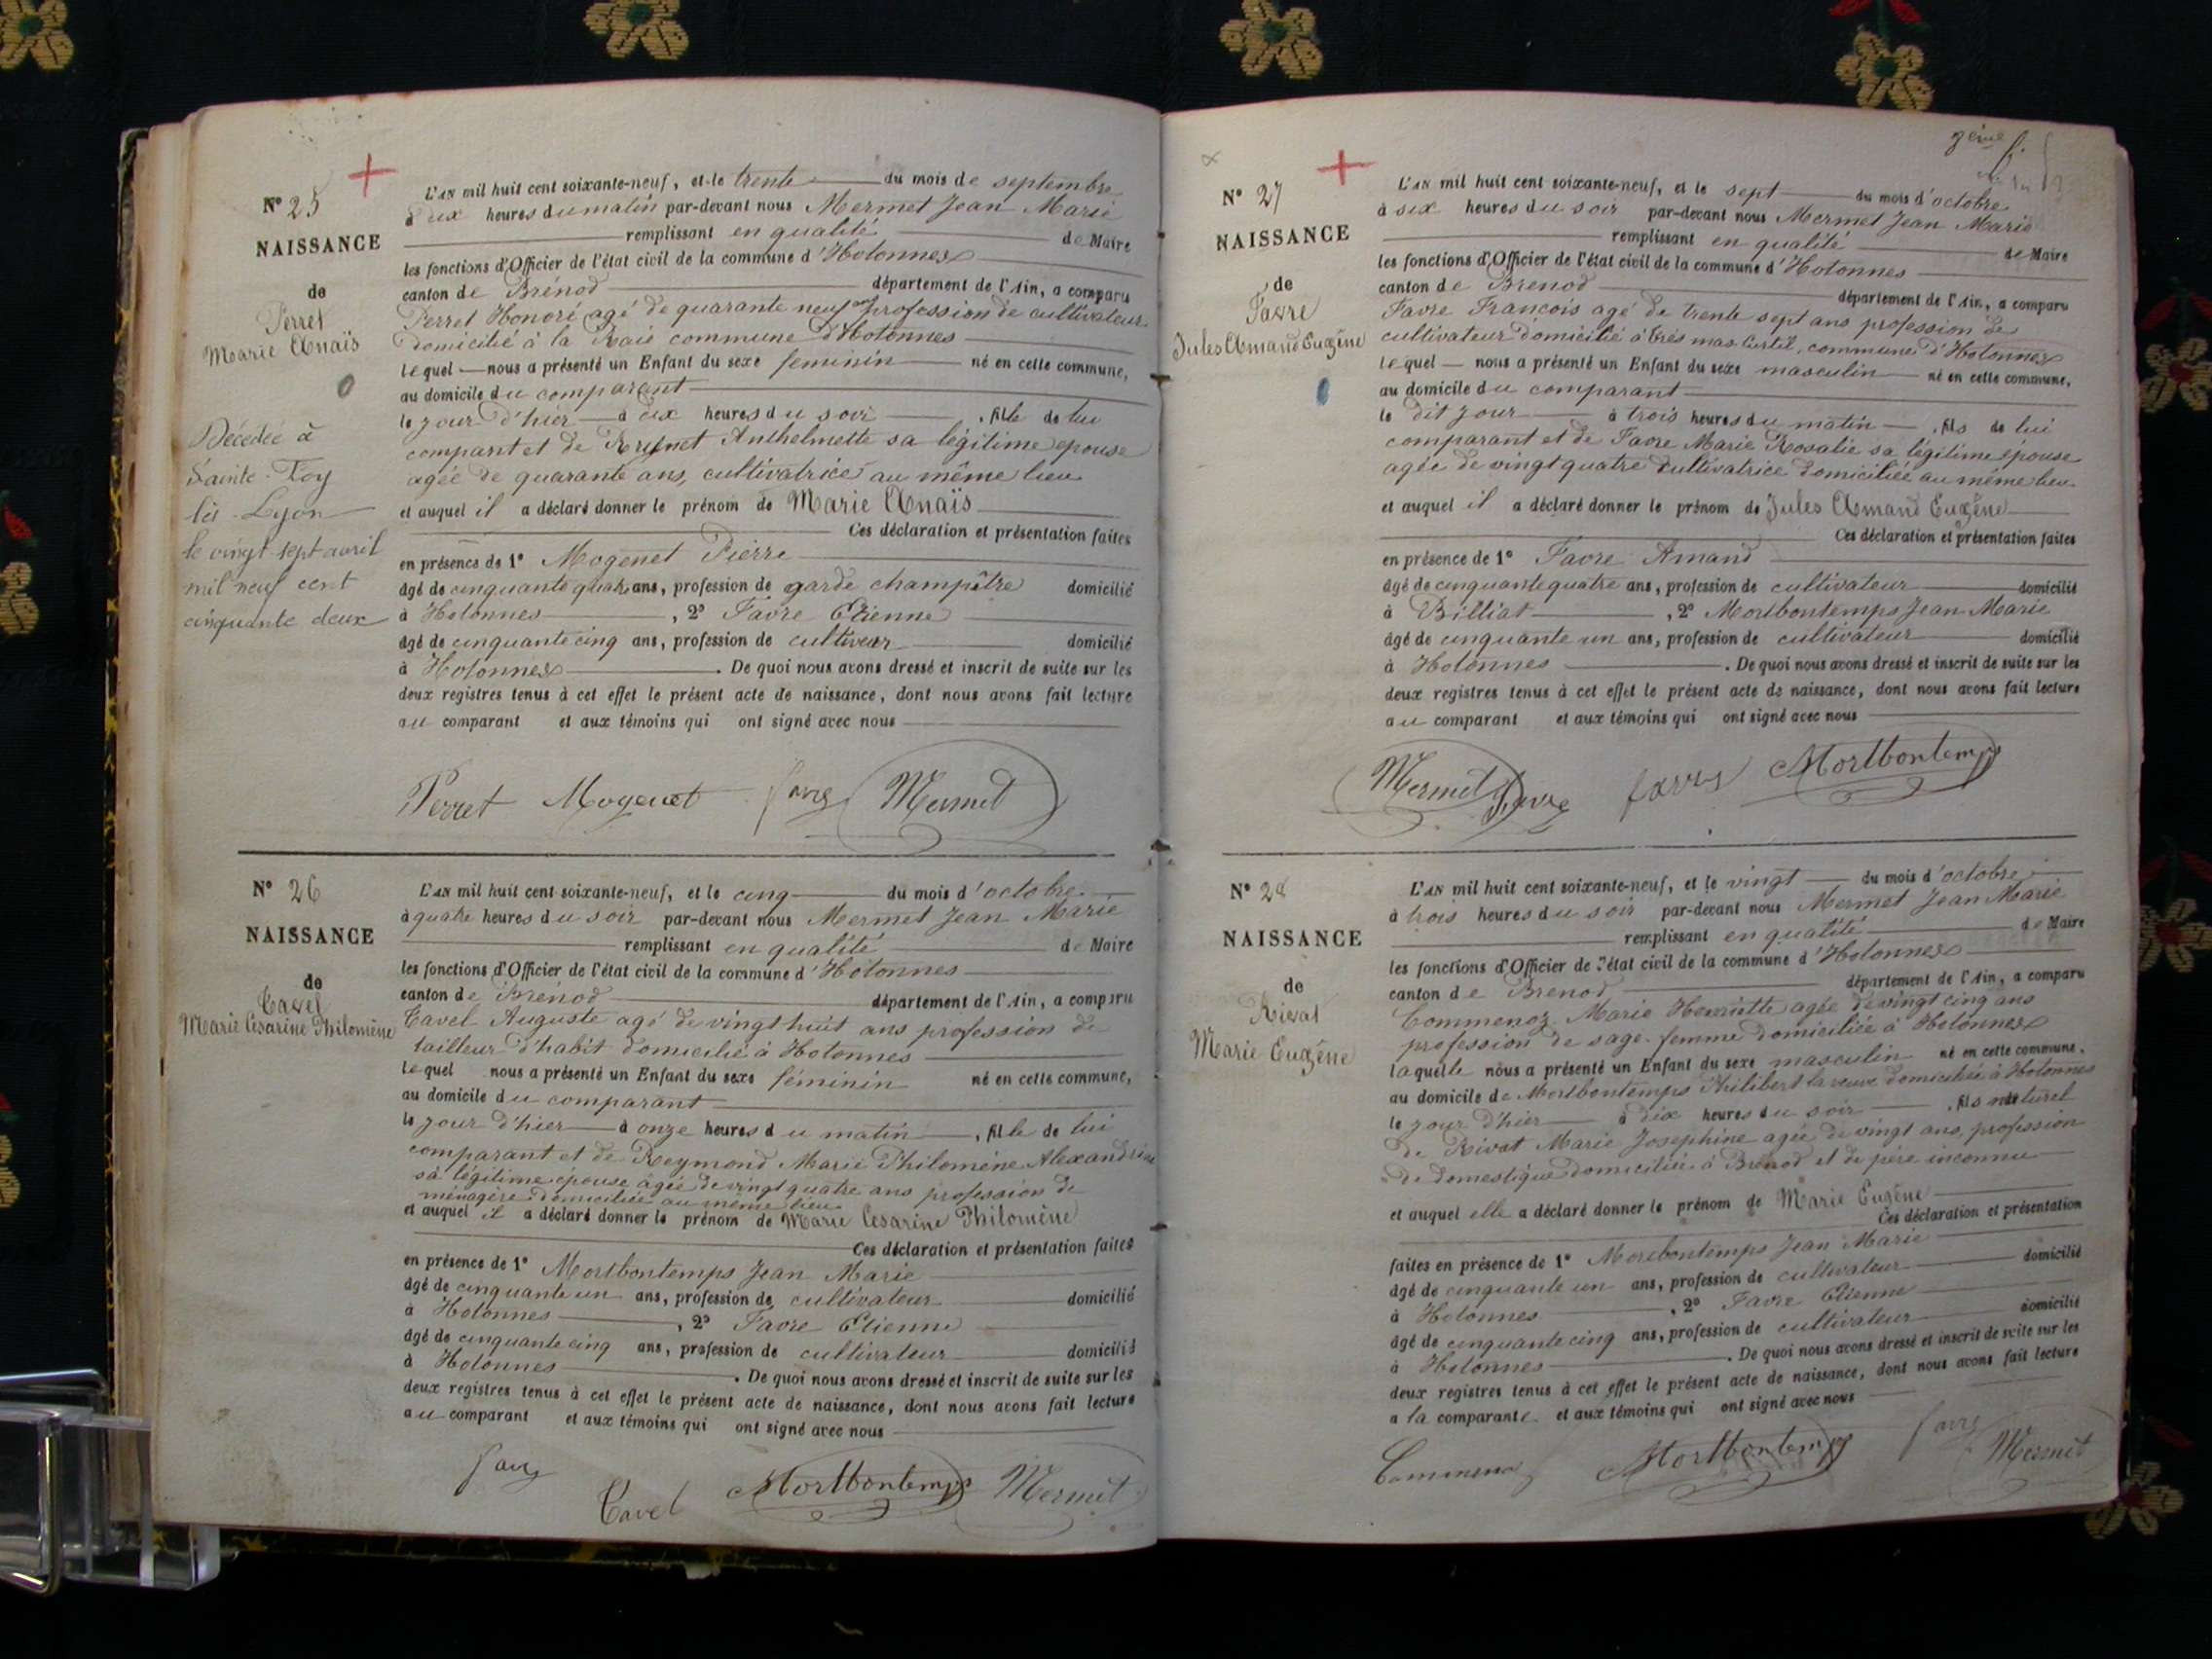 N° 25
NAISSANCE
de
Perret
Marie Anaïs
Décédée à
Sainte-Foy
lès-Lyon
le vingt sept avril
mil neuf cent
cinquante deux
L'AN mil huit cent soixante-neuf, et le trente du mois de septembre
à heures du matin par-devant nous Mermet Jean Marie
remplissant en qualité de Maire
les fonctions d'Officier de l'état civil de la commune d'Hotonnes
canton de Brénod département de l'Ain, a comparu
Perret Honoré agé de quarante neuf ans profession de cultivateur
domicilié à la commune d'Hotonnes
lequel nous a présenté un Enfant du sexe feminin né en cette commune,
au domicile du comparant
le jour d'hier à dix heures du soir , fille de lui
comparant et de Anthelmette sa légitime épouse
agée de quarante ans, cultivatrice au même lieu
et auquel il a déclaré donner le prénom de Marie Anaïs
Ces déclaration et présentation faites
en présence de 1° Mogenet Pierre
âgé de cinquante quatre ans, profession de garde champêtre domicilié
à Hotonnes , 2° Favre Etienne
âgé de cinquante cinq ans, profession de cultiveur domicilié
à Hotonnes . De quoi nous avons dressé et inscrit de suite sur les
deux registres tenus à cet effet le présent acte de naissance, dont nous avons fait lecture
au comparant et aux témoins qui ont signé avec nous
Perret Mogenet favre Mermet
N° 26
NAISSANCE
de
Cavel
Marie Cesarine Philomène
L'AN mil huit cent soixante-neuf, et le cinq du mois d'octobre
à quatre heures du soir par-devant nous Mermet Jean Marie
remplissant en qualité de Maire
les fonctions d'Officier de l'état civil de la commune d'Hotonnes
canton de Brénod département de l'Ain, a comparu
Cavel Auguste agé de vingt huit ans profession de
tailleur d'habit domicilié à Hotonnes
lequel nous a présenté un Enfant du sexe féminin né en cette commune,
au domicile du comparant
le jour d'hier à onze heures du matin , fille de lui
comparant et de Reymond Marie Philomène Alexandrine
sa légitime épouse agée de vingt quatre ans profession de
ménagère domiciliée au même lieu
et auquel il a déclaré donner le prénom de Marie Cesarine Philomène
Ces déclaration et présentation faites
en présence de 1° Mortbontemps Jean Marie
âgé de cinquante un ans, profession de cultivateur domicilié
à Hotonnes , 2° Favre Etienne
âgé de cinquante cinq ans, profession de cultivateur domicilié
à Hotonnes . De quoi nous avons dressé et inscrit de suite sur les
deux registres tenus à cet effet le présent acte de naissance, dont nous avons fait lecture
au comparant et aux témoins qui ont signé avec nous
favre Cavel Mortbontemps Mermet
7ème f.
N° 27
NAISSANCE
de
Favre
Jules Amand Eugène
L'AN mil huit cent soixante-neuf, et le sept du mois d'octobre
à six heures du soir par-devant nous Mermet Jean Marie
remplissant en qualité de Maire
les fonctions d'Officier de l'état civil de la commune d'Hotonnes
canton de Brenod département de l'Ain, a comparu
Favre François agé de trente sept ans profession de
cultivateur domicilié à très mas Curtil, commune d'Hotonnes
lequel nous a présenté un Enfant du sexe masculin né en cette commune,
au domicile du comparant
le dit jour à trois heures du matin , fils de lui
comparant et de Favre Marie Rosalie sa légitime épouse
agée de vingt quatre cultivatrice domiciliée au même lieu
et auquel il a déclaré donner le prénom de Jules Amand Eugène
Ces déclaration et présentation faites
en présence de 1° Favre Amand
âgé de cinquante quatre ans, profession de cultivateur domicilié
à Billiat , 2° Mortbontemps Jean Marie
âgé de cinquante un ans, profession de cultivateur domicilié
à Hotonnes . De quoi nous avons dressé et inscrit de suite sur les
deux registres tenus à cet effet le présent acte de naissance, dont nous avons fait lecture
au comparant et aux témoins qui ont signé avec nous
Mermet favre favre Mortbontemps
N° 28
NAISSANCE
de
Rivat
Marie Eugène
L'AN mil huit cent soixante-neuf, et le vingt du mois d'octobre
à trois heures du soir par-devant nous Mermet Jean Marie
remplissant en qualité de Maire
les fonctions d'Officier de l'état civil de la commune d'Hotonnes
canton de Brenod département de l'Ain, a comparu
Commenoz Marie Henriette agée de vingt cinq ans
profession de sage-femme domiciliée à Hotonnes
laquelle nous a présenté un Enfant du sexe masculin né en cette commune,
au domicile de Mortbontemps Philibert la veuve domiciliée à Hotonnes
le jour d'hier à dix heures du soir , fils naturel
de Rivat Marie Josephine agée de vingt ans, profession
de domestique domiciliée à Brenod et de père inconnu
et auquel elle a déclaré donner le prénom de Marie Eugène
Ces déclaration et présentation
faites en présence de 1° Mortbontemps Jean Marie
âgé de cinquante un ans, profession de cultivateur domicilié
à Hotonnes , 2° Favre Etienne
âgé de cinquante cinq ans, profession de cultivateur domicilié
à Hotonnes . De quoi nous avons dressé et inscrit de suite sur les
deux registres tenus à cet effet le présent acte de naissance, dont nous avons fait lecture
a la comparante et aux témoins qui ont signé avec nous
Commenoz Mortbontemps favre Mermet